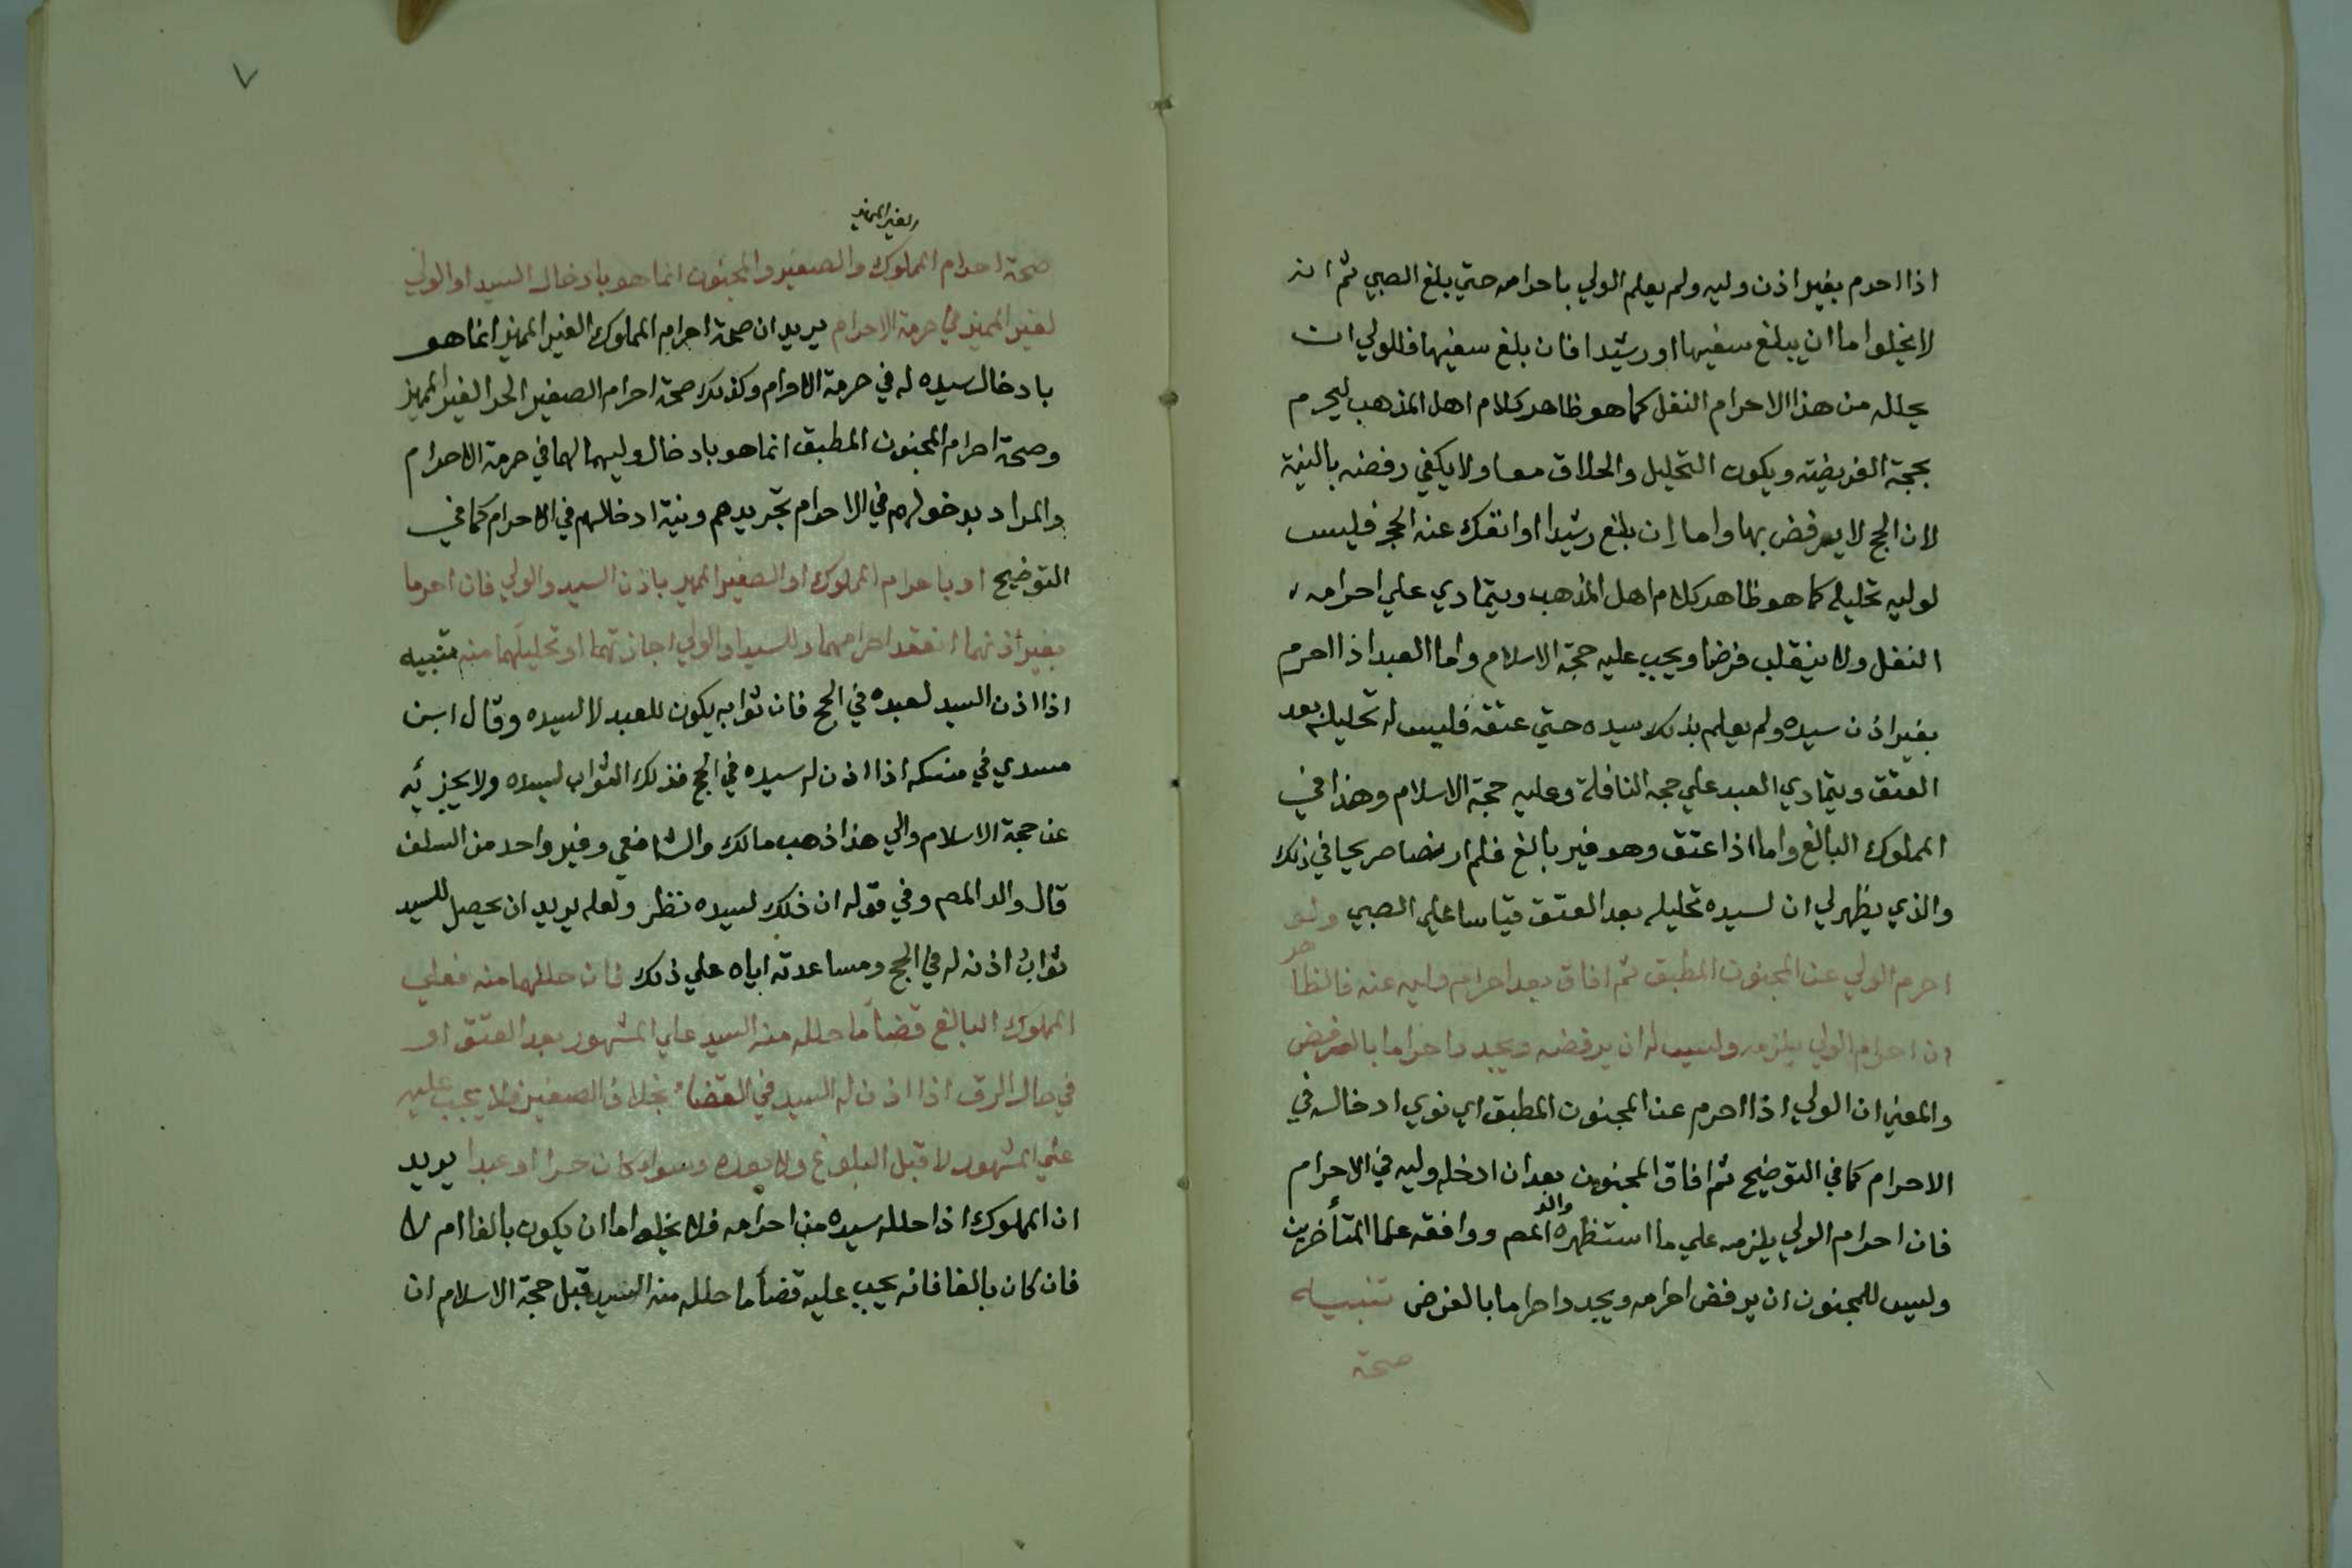 اذا احرم بغير اذن وليه ولم يعلم الولي باحرامه حتي بلغ الصبي ثم انه
لا يخلوا اما ان يبلغ سفيها او رشيدا فان بلغ سفيها فللولي ان
يحلله من هذا الاحرام النفل كما هو ظاهر كلام اهل المذهب ليحرم
بحجة الفريضته ويكون التحليل والحلاق معا ولا يكفي رفضه بالنية
لان الحج لا يرفض بها واما ان بلغ رشيدا او انفك عنه الحجر فليس
لوليه تحليله كما هو ظاهر كلام اهل المذهب ويتمادي علي احرامه
النفل ولا ينقلب فرضا ويجب عليه حجة الاسلام واما العبد اذا احرم
بغير اذن سيده ولم يعلم بذلك سيده حتي عتقه فليس له تحليله بعد
العتق ويتمادي العبد علي حجه النافلة وعليه حجة الاسلام وهذا في
المملوك البالغ واما اذا عتق وهو غير بالغ فلم ار نصا صريحا في ذلك
والذي يظهر لي ان لسيده تحليله بعد العتق قياسا علي الصبي ولو
احرم الولي عن المجنون المطبق ثم افاق بعد احرام وليه عنه فالظاهر
ان احرام الولي يلزمه وليس له ان يرفضه ويجدد احراما بالفرض
والمعني ان الولي اذا احرم عن المجنون المطبق اي نوي ادخاله في
الاحرام كما في التوضيح ثم افاق المجنون بعد ان ادخله وليه في الاحرام
فان احرام الولي يلزمه علي ما استظهره والد المصم ووافقه علما المتأخرين
وليس للمجنون ان يرفض احرامه ويجدد احراما بالفرض تنبيه
صحة
والغير المميز
صحة احرام المملوك والصغير والمجنون انما هو بادخال السيد او الولي
لغير المميز في حرمة الاحرام يريد ان صحة احرام المملوك الغير المميز انما هو
بادخال سيده له في حرمة الاحرام وكذلك صحة احرام الصغير الحر الغير المميز
وصحة احرام المجنون المطبق انما هو بادخال وليهما لهما في حرمة الاحرام
والمراد بدخولهم في الاحرام تجريدهم ونية ادخالهم في الاحرام كما في
التوضيح او باحرام المملوك او الصغير المميز باذن السيد والولي فان احرما
بغير اذنهما انعقد احرامهما وللسيد او الولي اجازتهما او تحليلهما منه تنبيه
اذا اذن السيد لعبده في الحج فان ثوابه يكون للعبد لا لسيده وقال ابن
مسدي في منسكه اذا اذن له سيده في الحج فذلك الثواب لسيده ولا يجزئه
عن حجة الاسلام والي هذا ذهب مالك والشافعي وغير واحد من السلف
قال والد المصم وفي قوله ان ذلك لسيده نظر ولعله يريد ان يحصل للسيد
ثواب اذنه له في الحج ومساعدته اياه علي ذلك فان حللهما منه فعلي
المملوك البالغ قضأ ما حلله منه السيد علي المشهور بعد العتق او
في حال الرق اذا اذن له السيد في القضاء بخلاف الصغير فلا يجب عليه
علي المشهور لا قبل البلوغ ولا بعده وسواء كان حرا او عبدا يريد
ان المملوك اذا حلله سيده من احرامه فلا يخلو اما ان يكون بالغا ام لا
فان كان بالغا فانه يجب عليه قضأ ما حلله منه السيد قبل حجة الاسلام ان